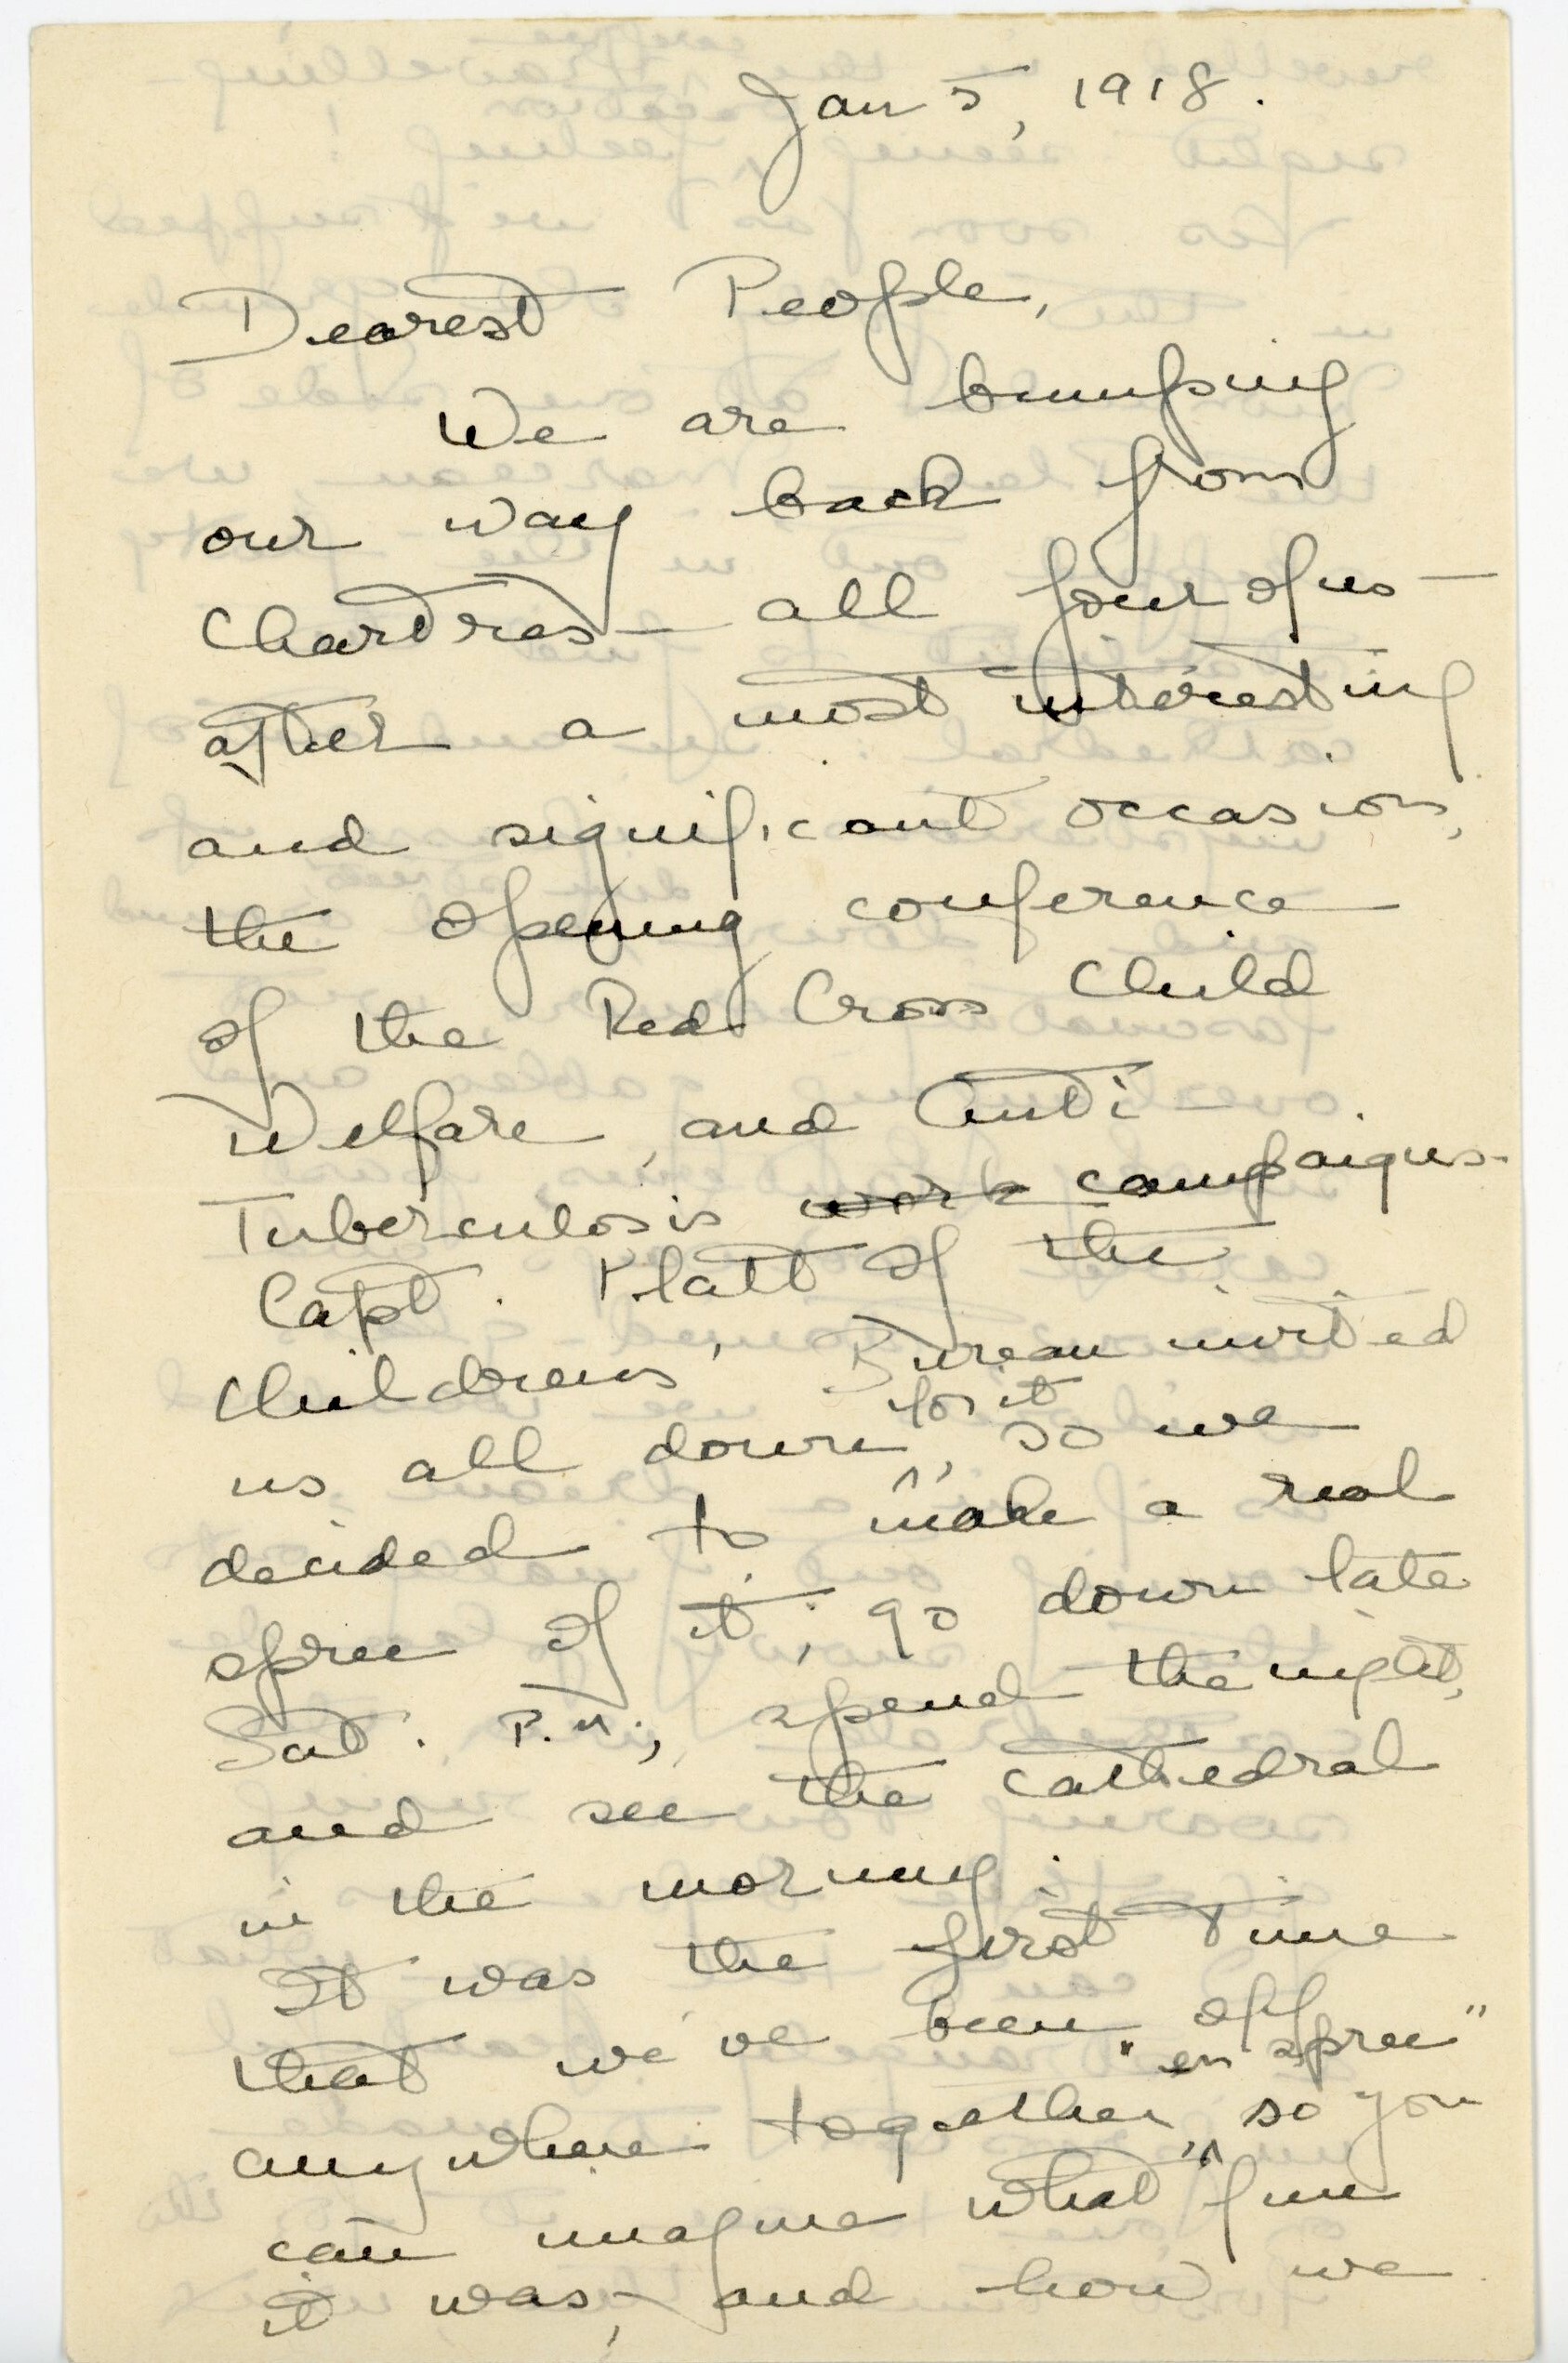 Jan 5, 1918.
Dearest People,
We are bumping
our way back from
Chartres – all four of us –
after a most interesting
and significant occasion,
the opening conference
of the Red Cross Child
Welfare, and Anti-
Tuberculosis work campaigns.
Capt. Platt of the
Childrens' Bureau invited
for it
us all down, so we
decided to make a real
spree of it; go down late
Sat. P.M., spend the night,
and see the cathedral
in the morning.
It was the first time
that we've been off
"en spree"
anywhere together, so you
can imagine what fun
it was, and how we